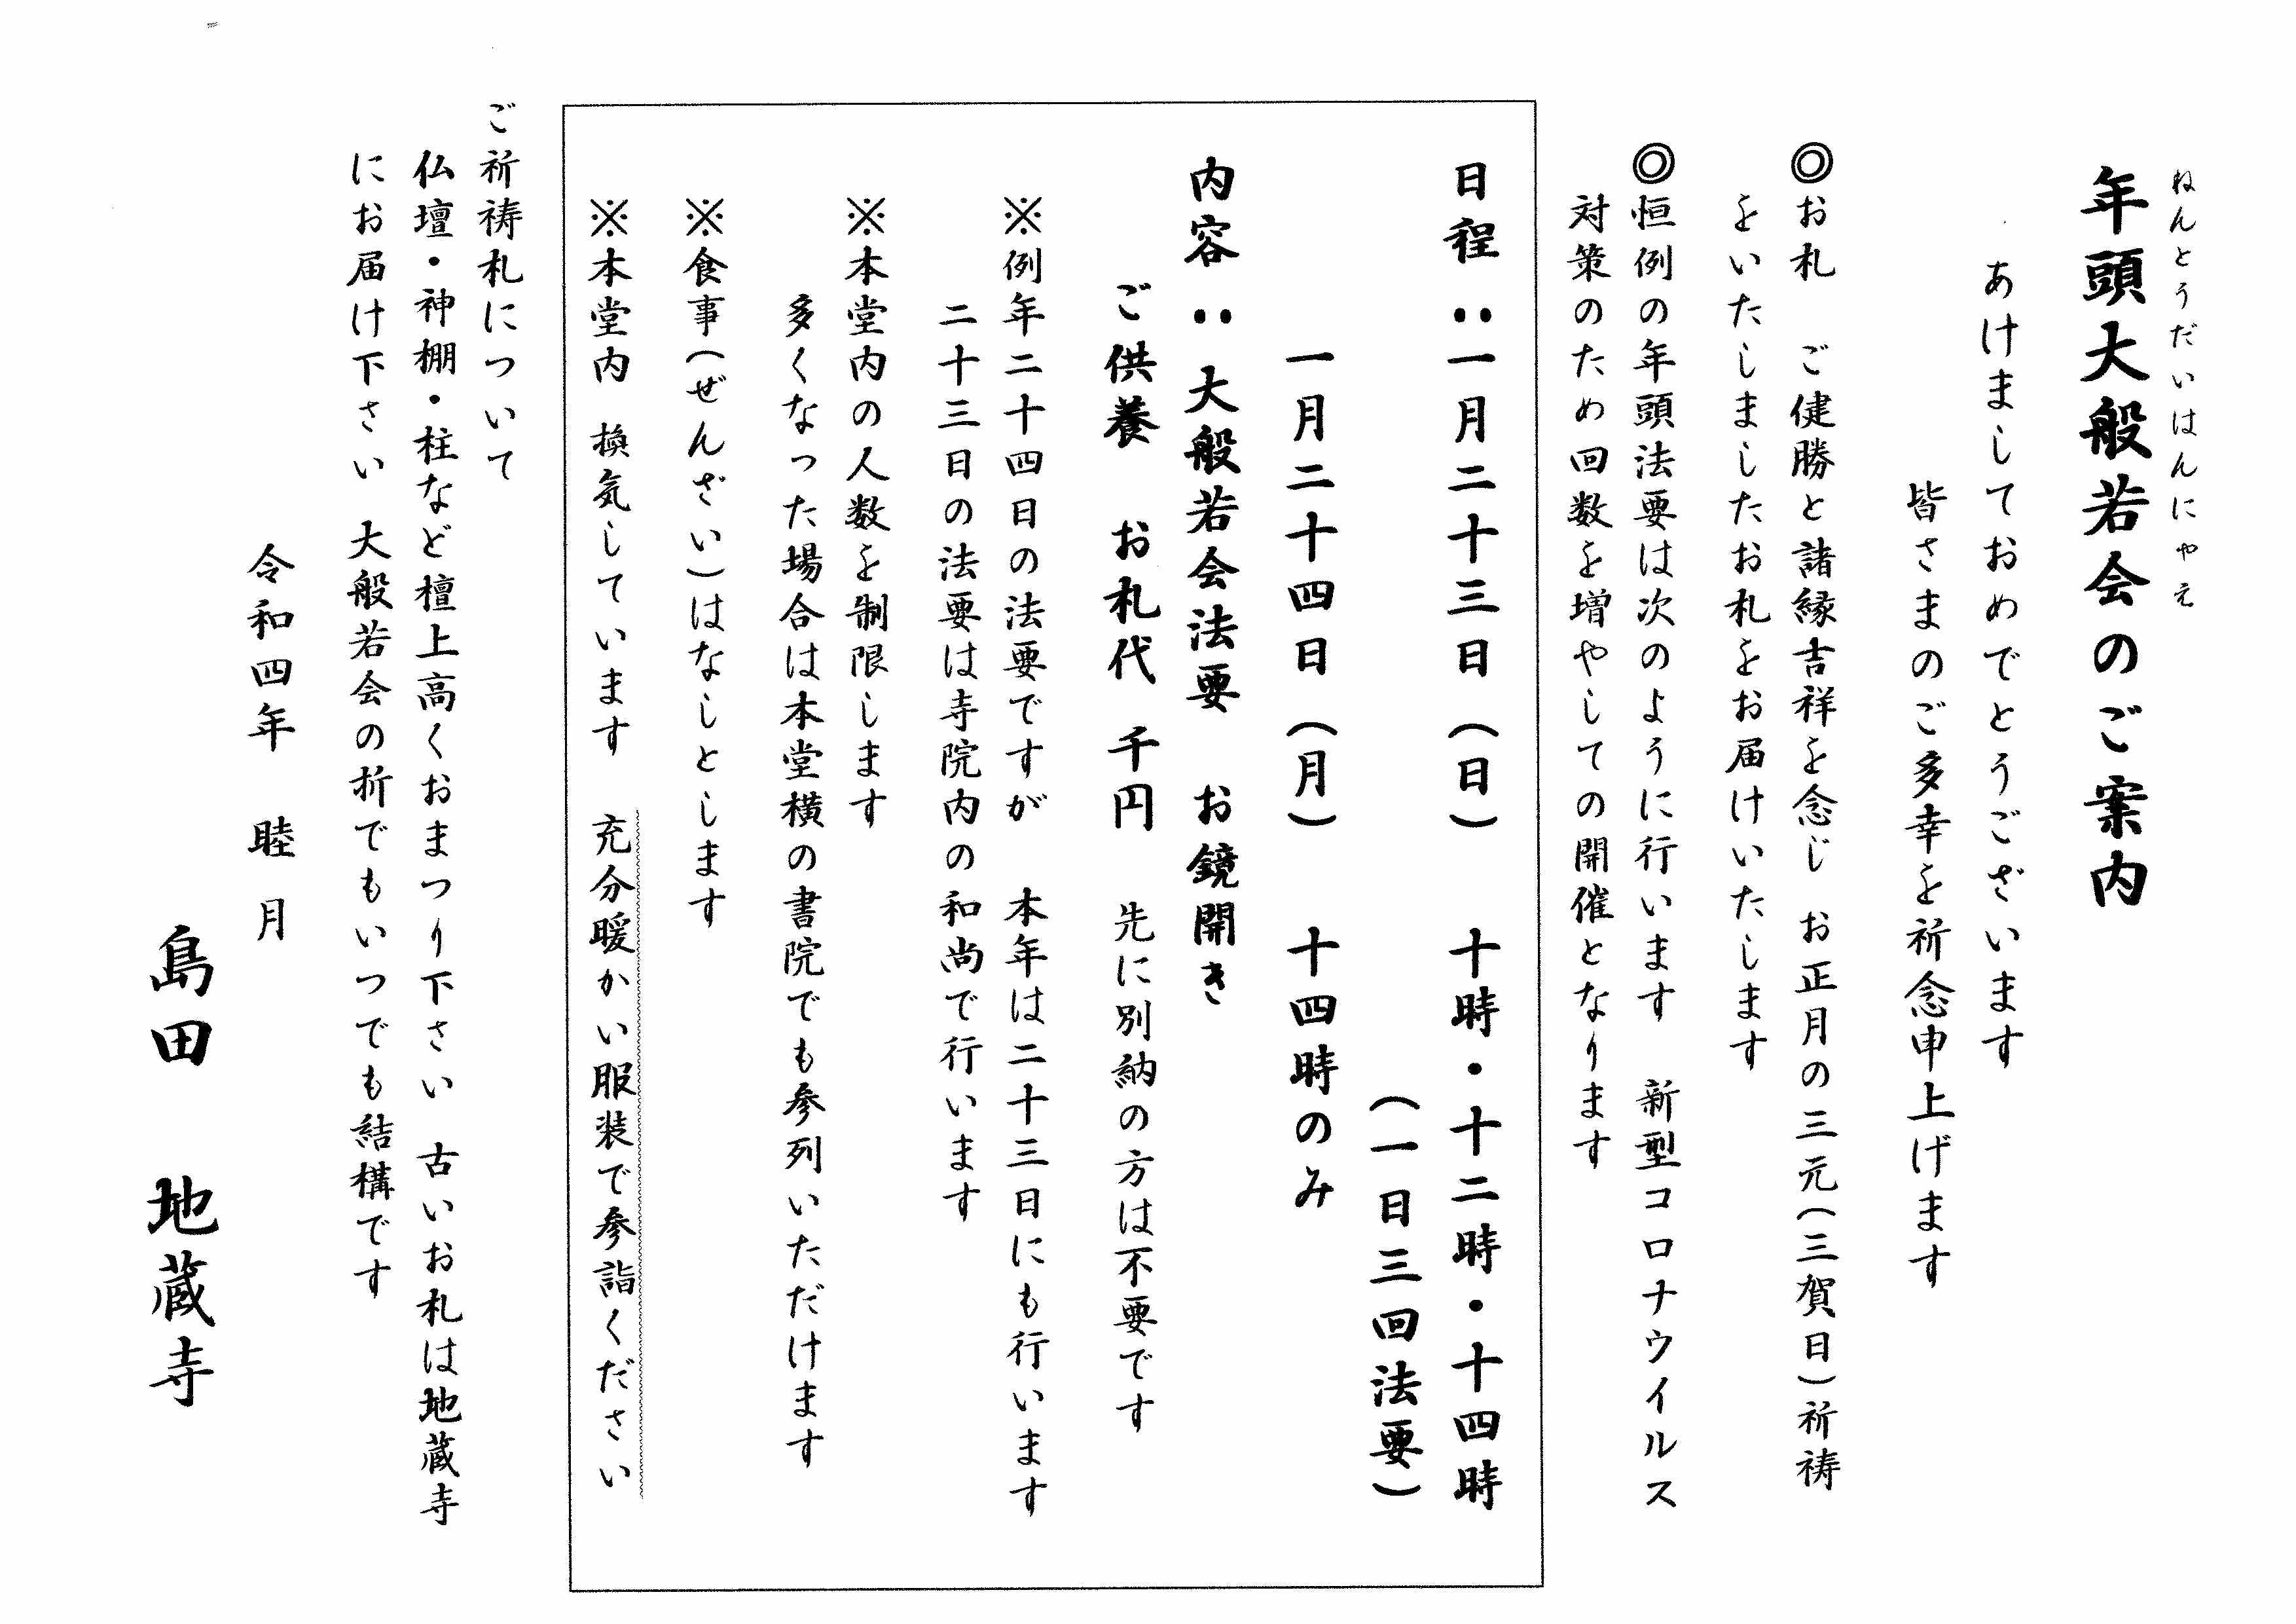 ねんとうだいはんにゃえ
年頭大般若会のご案内
あけましておめでとうございます
皆さまのご多幸を祈念申上げます
◎お札　ご健勝と諸縁吉祥を念じ　お正月の三元(三賀日)祈祷
をいたしましたお札をお届けいたします
◎恒例の年頭法要は次のように行います　新型コロナウイルス
対策のため回数を増やしての開催となります
日程：一月二十三日（日）　十時・十二時・十四時
（一日三回法要）
一月二十四日（月）　十四時のみ
内容：大般若会法要　お鏡開き
ご供養　お札代　千円　先に別納の方は不要です
※例年二十四日の法要ですが　本年は二十三日にも行います
二十三日の法要は寺院内の和尚で行います
※本堂内の人数を制限します
多くなった場合は本堂横の書院でも参列いただけます
※食事(ぜんざい)はなしとします
※本堂内　換気しています　充分暖かい服装で参詣ください
ご祈祷札について
仏壇・神棚・柱など檀上高くおまつり下さい　古いお札は地蔵寺
にお届け下さい　大般若会の折でもいつでも結構です
令和四年　睦月
島田　地蔵寺